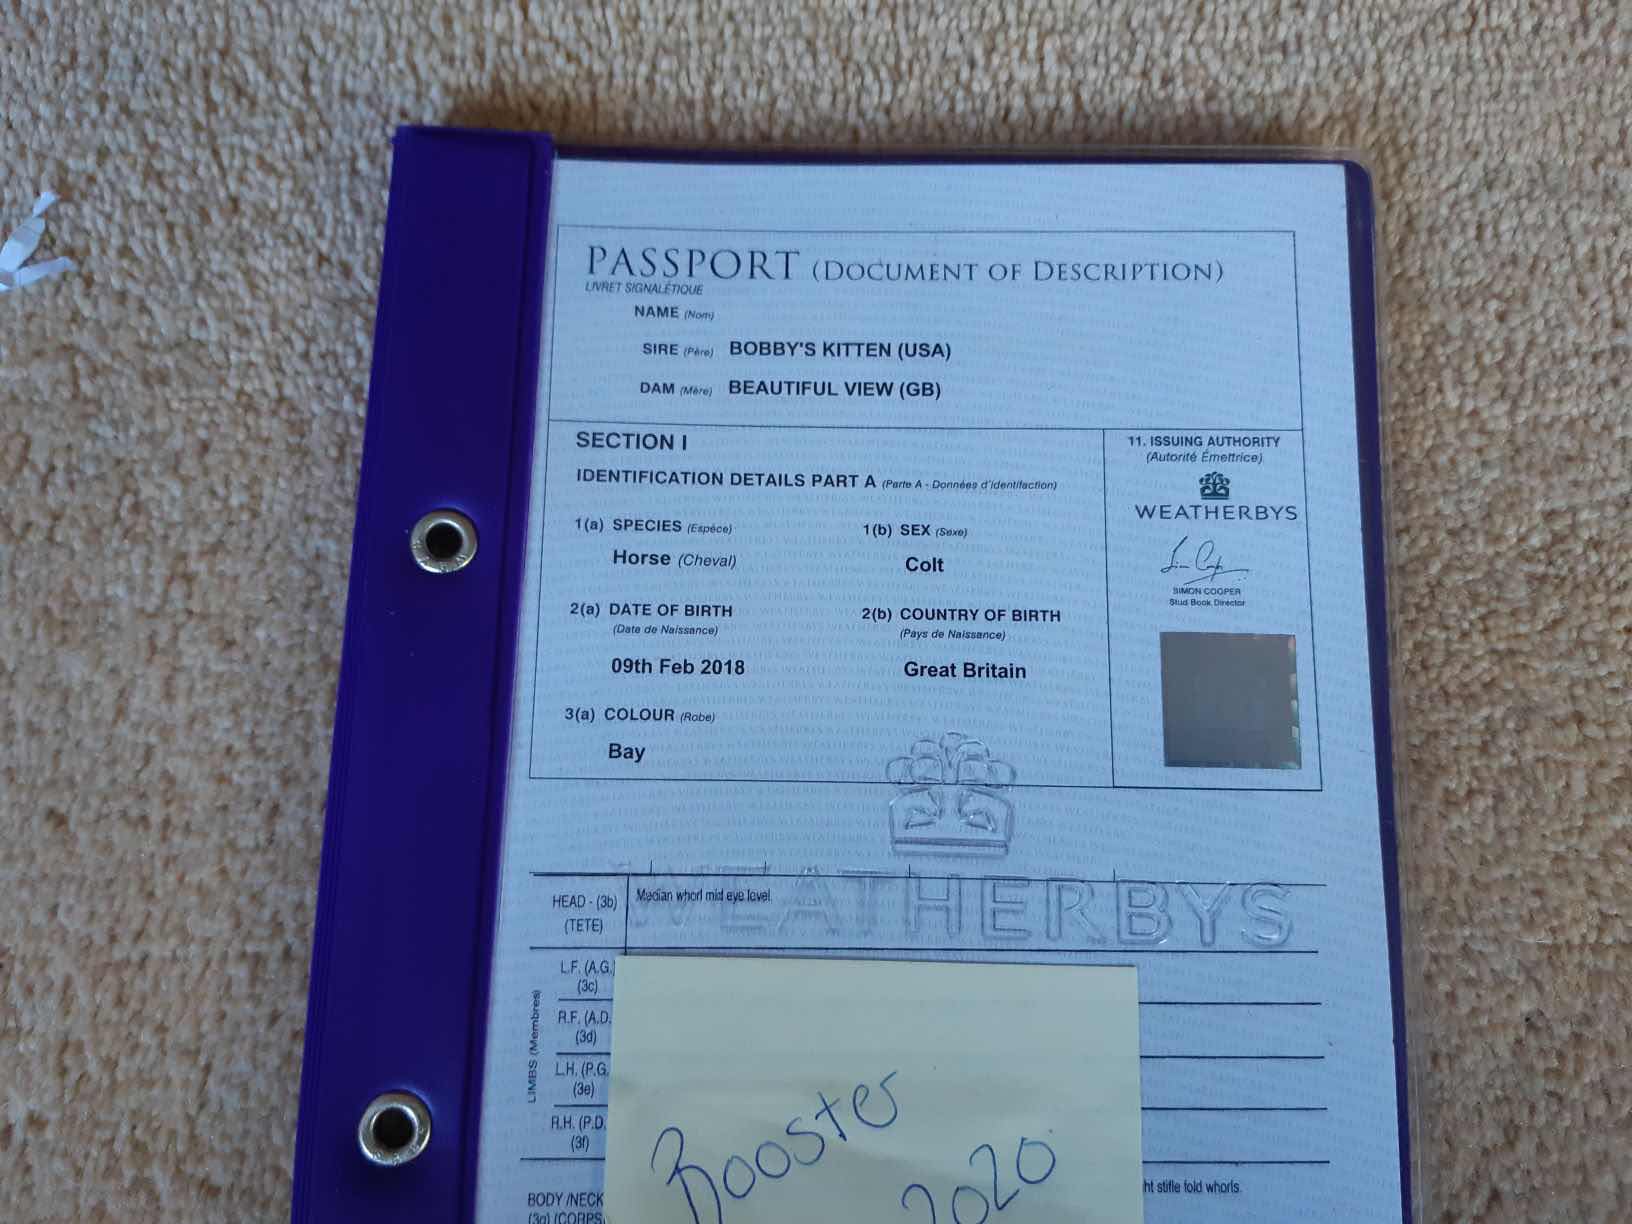 PASSPORT (DOCUMENT OF DESCRIPTION)
LIVRET SIGNALÉTIQUE
NAME (Nom)
SIRE (Père) BOBBY'S KITTEN (USA)
DAM (Mère) BEAUTIFUL VIEW (GB)
SECTION I
IDENTIFICATION DETAILS PART A (Parte A - Données d'identifaction)
1(a) SPECIES (Espèce) 1(b) SEX (Sexe)
Horse (Cheval) Colt
2(a) DATE OF BIRTH 2(b) COUNTRY OF BIRTH
(Date de Naissance) (Pays de Naissance)
09th Feb 2018 Great Britain
3(a) COLOUR (Robe)
Bay
11. ISSUING AUTHORITY
(Autorité Émettrice)
WEATHERBYS
SIMON COOPER
Stud Book Director
WEATHERBYS
HEAD - (3b) Median whorl mid eye level.
(TETE)
LIMBS (Membres)
L.F. (A.G.)
(3c)
R.F. (A.D.
(3d)
L.H. (P.G.
(3e)
R.H. (P.D.
(3f)
BODY /NECK
(3g) (CORPS
ht stifle fold whorls.
Booster
2020